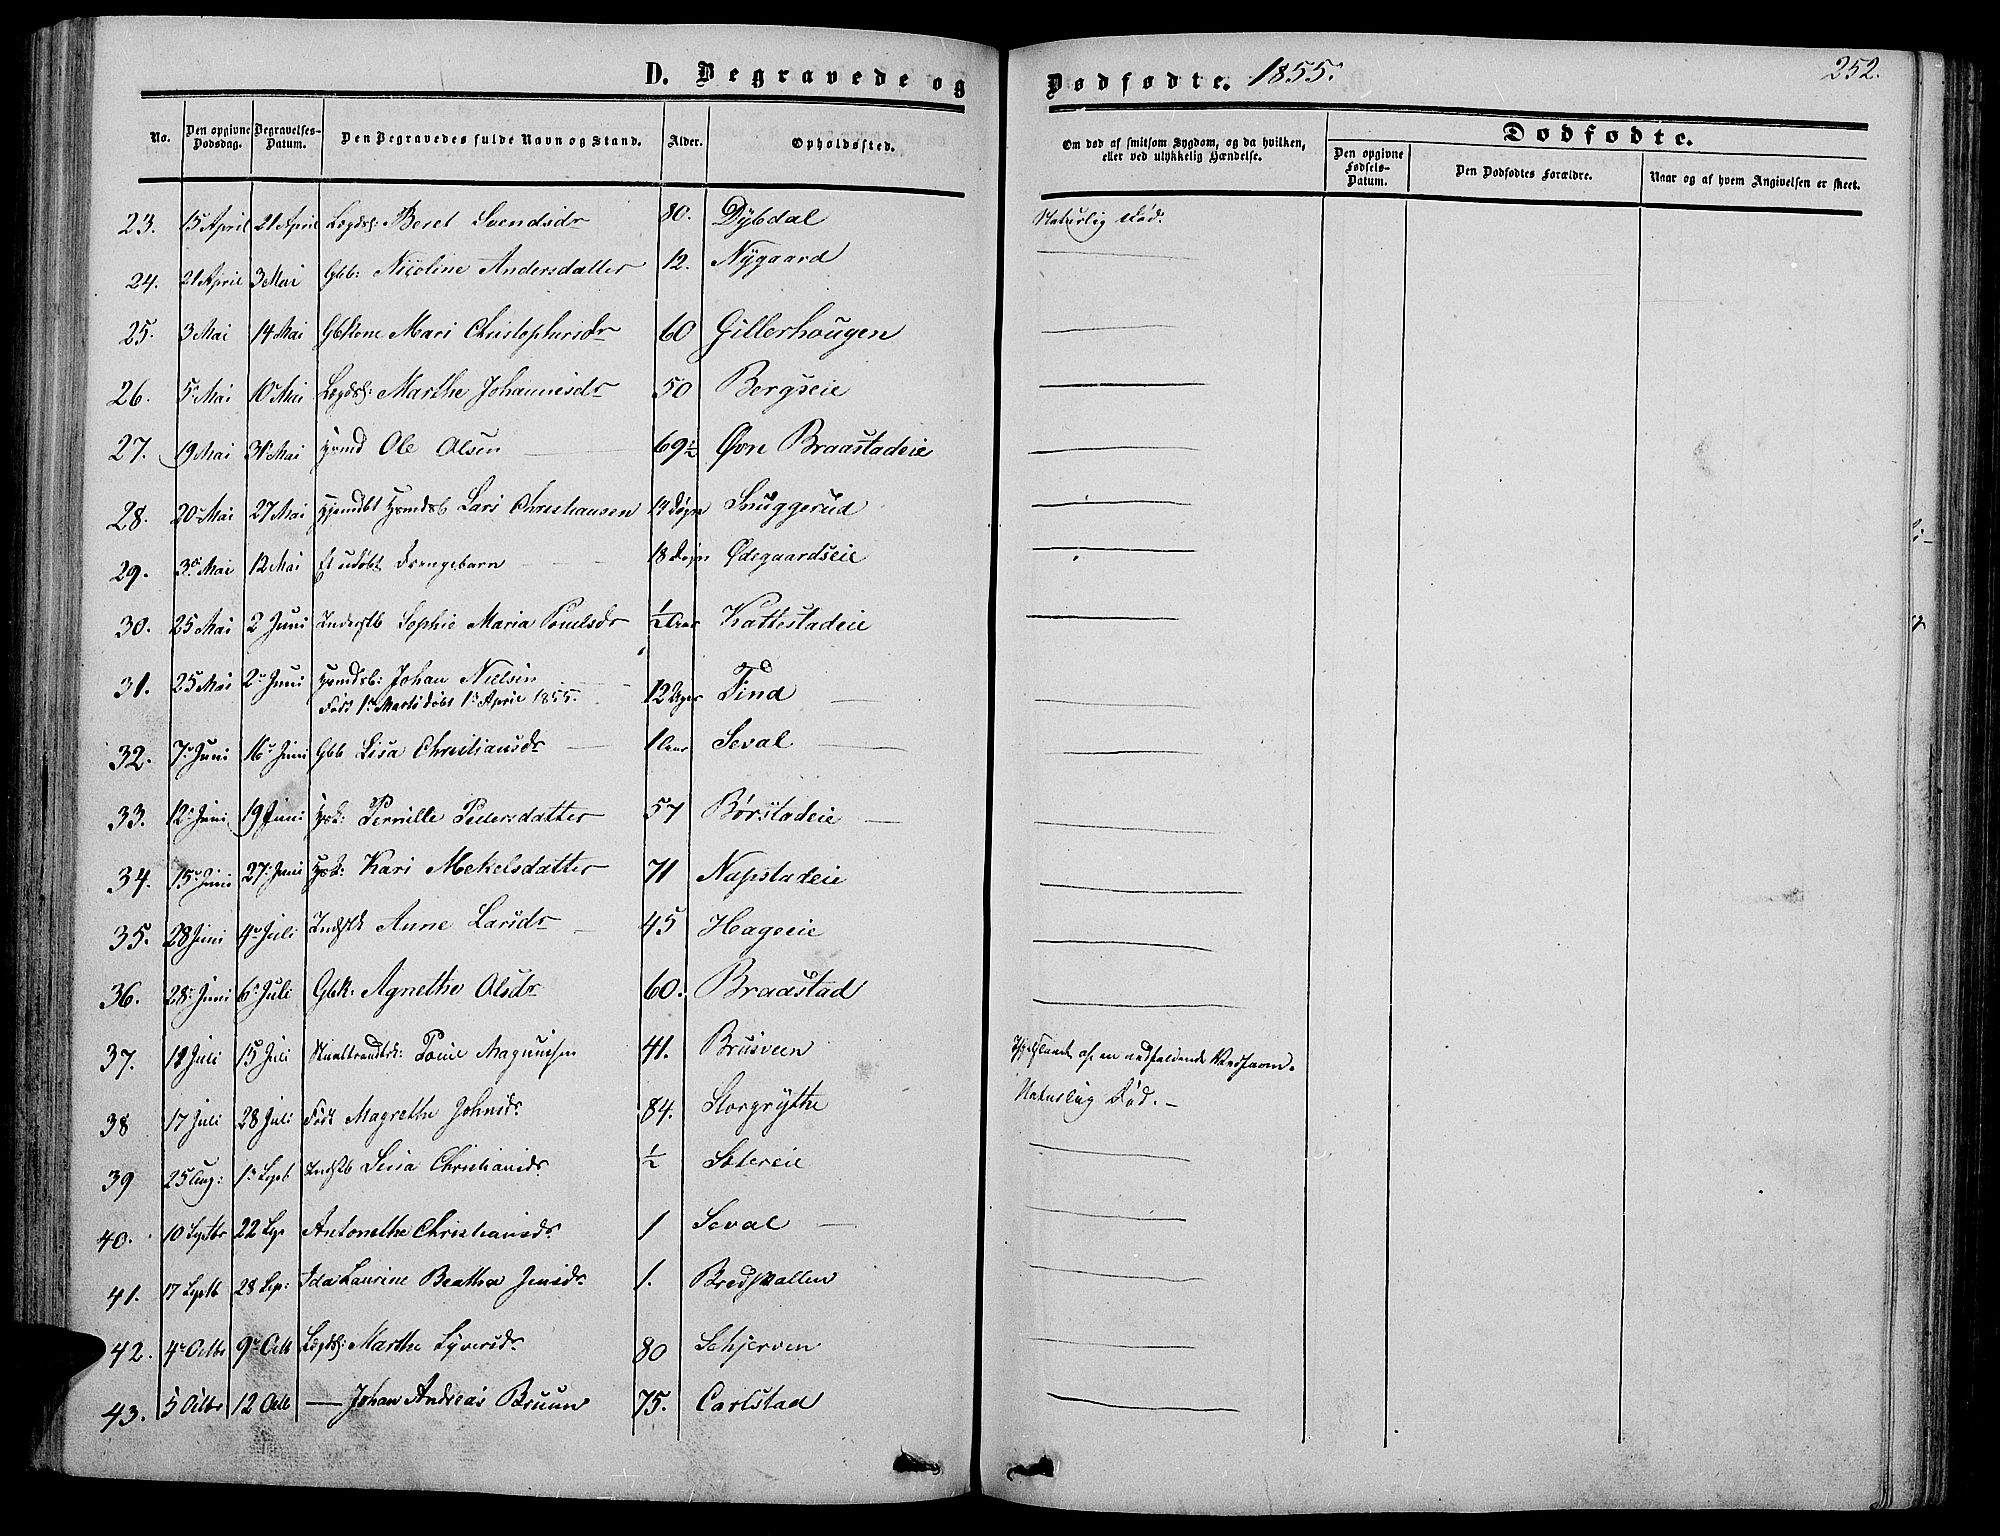 D. Begravede og Dødfødte. 1855. 252.
Dødfødte.
No. Den opgivne Dødsdag. Begravelses-Datum. Den Begravedes fulde Navn og Stand. Alder. Opholdssted. Om død af smitsom Sygdom, og da hvilken, eller ved ulykkelig Hændelse. Den opgivne Fødsels-Datum. Den Dødfødtes Forældre. Naar og af hvem Angivelsen er skeet.
23. 15 April 21 April Lægdsl: Beret Svendsdr 80. Dybdal Naturlig Død.
24. 21 April 3 Mai Gbb: Nicoline Andersdatter 12. Nygaard
25. 3 Mai 14 Mai Gbkone Mari Christophersdr 60 Gillerhougen
26. 5 Mai 10 Mai Lægdsl: Marthe Johannesdr 50 Bergseie
27. 19 Mai 31 Mai Hsmd Ole Olsen 69½ Øvre Braastadeie
28. 20 Mai 27 Mai Hjemdbt Hsmdsb Lars Christiansen 13 Døgn Snuggerud
29. 3 Mai 12 Mai Et udøbt Drengebarn 18 Døgn Ødegaardseie
30. 25 Mai 2 Juni Inderstb Sophie Maria Poulsdr ½ Aar Kattestadeie
31. 25 Mai 2 Juni Hsmdsb: Johan Nielsen 12 Uger Tind
Født 1 Marts døbt 1 April 1855.
32. 7 Juni 16 Juni Gbb Lisa Christiansdr 1 Aar Seval
33. 12 Juni 19 Juni Hsk: Pernille Pedersdatter 57 Børstadeie
34. 15 Juni 27 Juni Hsk: Kari Mekelsdatter 71 Napstadeie
35. 28 Juni 4 Juli Indstk Anne Larsdr 45 Hageeie
36. 28 Juni 6 Juli Gbk: Agnethe Olsdr 60. Braastad
37. 11 Juli 15 Juli Magnusen 41. Brusveen Ihjelslaaet af en nedfaldende
38 17 Juli 28 Juli Føds Magrethe Johnsdr 84. Storgrythe Naturlig Død.
39 25 Aug: 1 Septb Indstb Lina Christiansdr ½ Sætereie
40. 10 Septbr 22 Sep Antonethe Christiansdr 1 Seval
41. 17 Septb 28 Sep: Ida Laurine Beathe Jensdr 1. Bredskallen
42. 4 Octbr 9 Octb Lægdsl: Marthe Syversdr 80 Schjerven
43. 5 Octbr 12 Octb — Johan Andreas Bruun 75. Carlstad